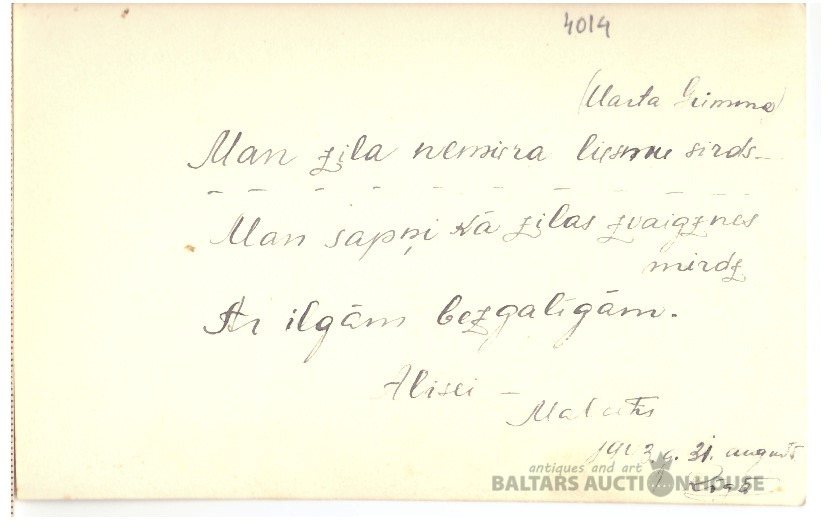 4014
(Marta Grimma)
Man zila nemiera liesmu sirds...
Man sapņi kā zilas zvaigznes
mirdz
Ar ilgām bezgalīgām.
Alisei –
31. augusts
antiques and art
BALTARS AUCTION HOUSE